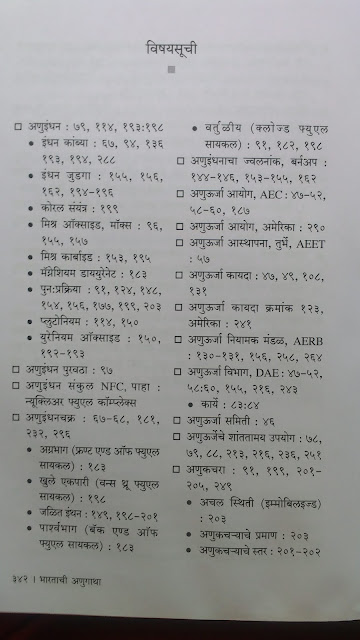 विषयसूची
□ अणुइंधन : ७९, ११४, १९३:१९८
• इंधन कांब्या : ६७, ९४, १३६
१९३, १९४, २८८
• इंधन जुडगा : १५५, १५६,
१६२, १९४-१९६
• कोरल संयंत्र : १९९
• मिश्र ऑक्साइड, मॉक्स : ९६,
१५५, १५७
• मिश्र कार्बाइड : १५३, १९५
• मॅग्नेशियम डाययुरेनेट : १८३
• पुन:प्रक्रिया : ९१, १२४, १४८,
१५४, १५६, १७७, १९९, २०३
• प्लुटोनियम : ११४, १५०
• युरेनियम ऑक्साइड : १५०,
१९२-१९३
□ अणुइंधन पुरवठा : ९७
□ अणुइंधन संकुल NFC, पाहा :
न्यूक्लिअर फ्युएल कॉम्प्लेक्स
□ अणुइंधनचक्र : ६७-६८, १८१,
२३२, २९६
• अग्रभाग (फ्रण्ट एण्ड ऑफ फ्युएल
सायकल) : १८३
• खुले एकपारी (वन्स थ्रू फ्युएल
सायकल) : १९८
• जळित इंधन : १४९, १९८-२०१
• पार्श्वभाग (बॅक एण्ड ऑफ
फ्युएल सायकल) : १८३
• वर्तुळीय (क्लोज्ड फ्युएल
सायकल) : ९१, १८२, १९८
□ अणुइंधनाचा ज्वलनांक, बर्नअप :
१४४-१४६, १५३-१५५, १६२
□ अणुऊर्जा आयोग, AEC : ४७-५२,
५८-६०, १८७
□ अणुऊर्जा आयोग, अमेरिका : २९०
□ अणुऊर्जा आस्थापना, तुर्भे, AEET
: ५७
□ अणुऊर्जा कायदा : ४७, ४९, १०८,
१३१
□ अणुऊर्जा कायदा क्रमांक १२३,
अमेरिका : २४१
□ अणुऊर्जा नियामक मंडळ, AERB
: १३०-१३१, १५६, २५८, २६४
□ अणुऊर्जा विभाग, DAE : ४७-५२,
५८:६०, १५५, २१६, २४३
• कार्ये : ८३:८४
□ अणुऊर्जा समिती : ४६
□ अणुऊर्जेचे शांततामय उपयोग : ७८,
७९, ८८, २१३, २१६, २३६, २५१
□ अणुकचरा : ९१, १९९, २०१-
२०५, २४९
• अचल स्थिती (इम्मोबिलइज्ड)
: २०३
• अणुकचऱ्याचे प्रमाण : २०३
• अणुकचऱ्याचे स्तर : २०१-२०२
३४२ । भारताची अणुगाथा